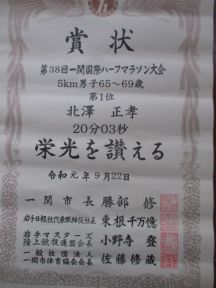 賞状
第38回一関国際ハーフマラソン大会
5km男子65～69歳
第1位
北澤 正孝
20分03秒
栄光を讃える
令和元年9月22日
一関市長 勝部 修
岩手日報社代表取締役社長 東根千万億
岩手マスターズ陸上競技連盟会長 小野寺 登
一般社団法人一関市体育協会会長 佐藤修蔵